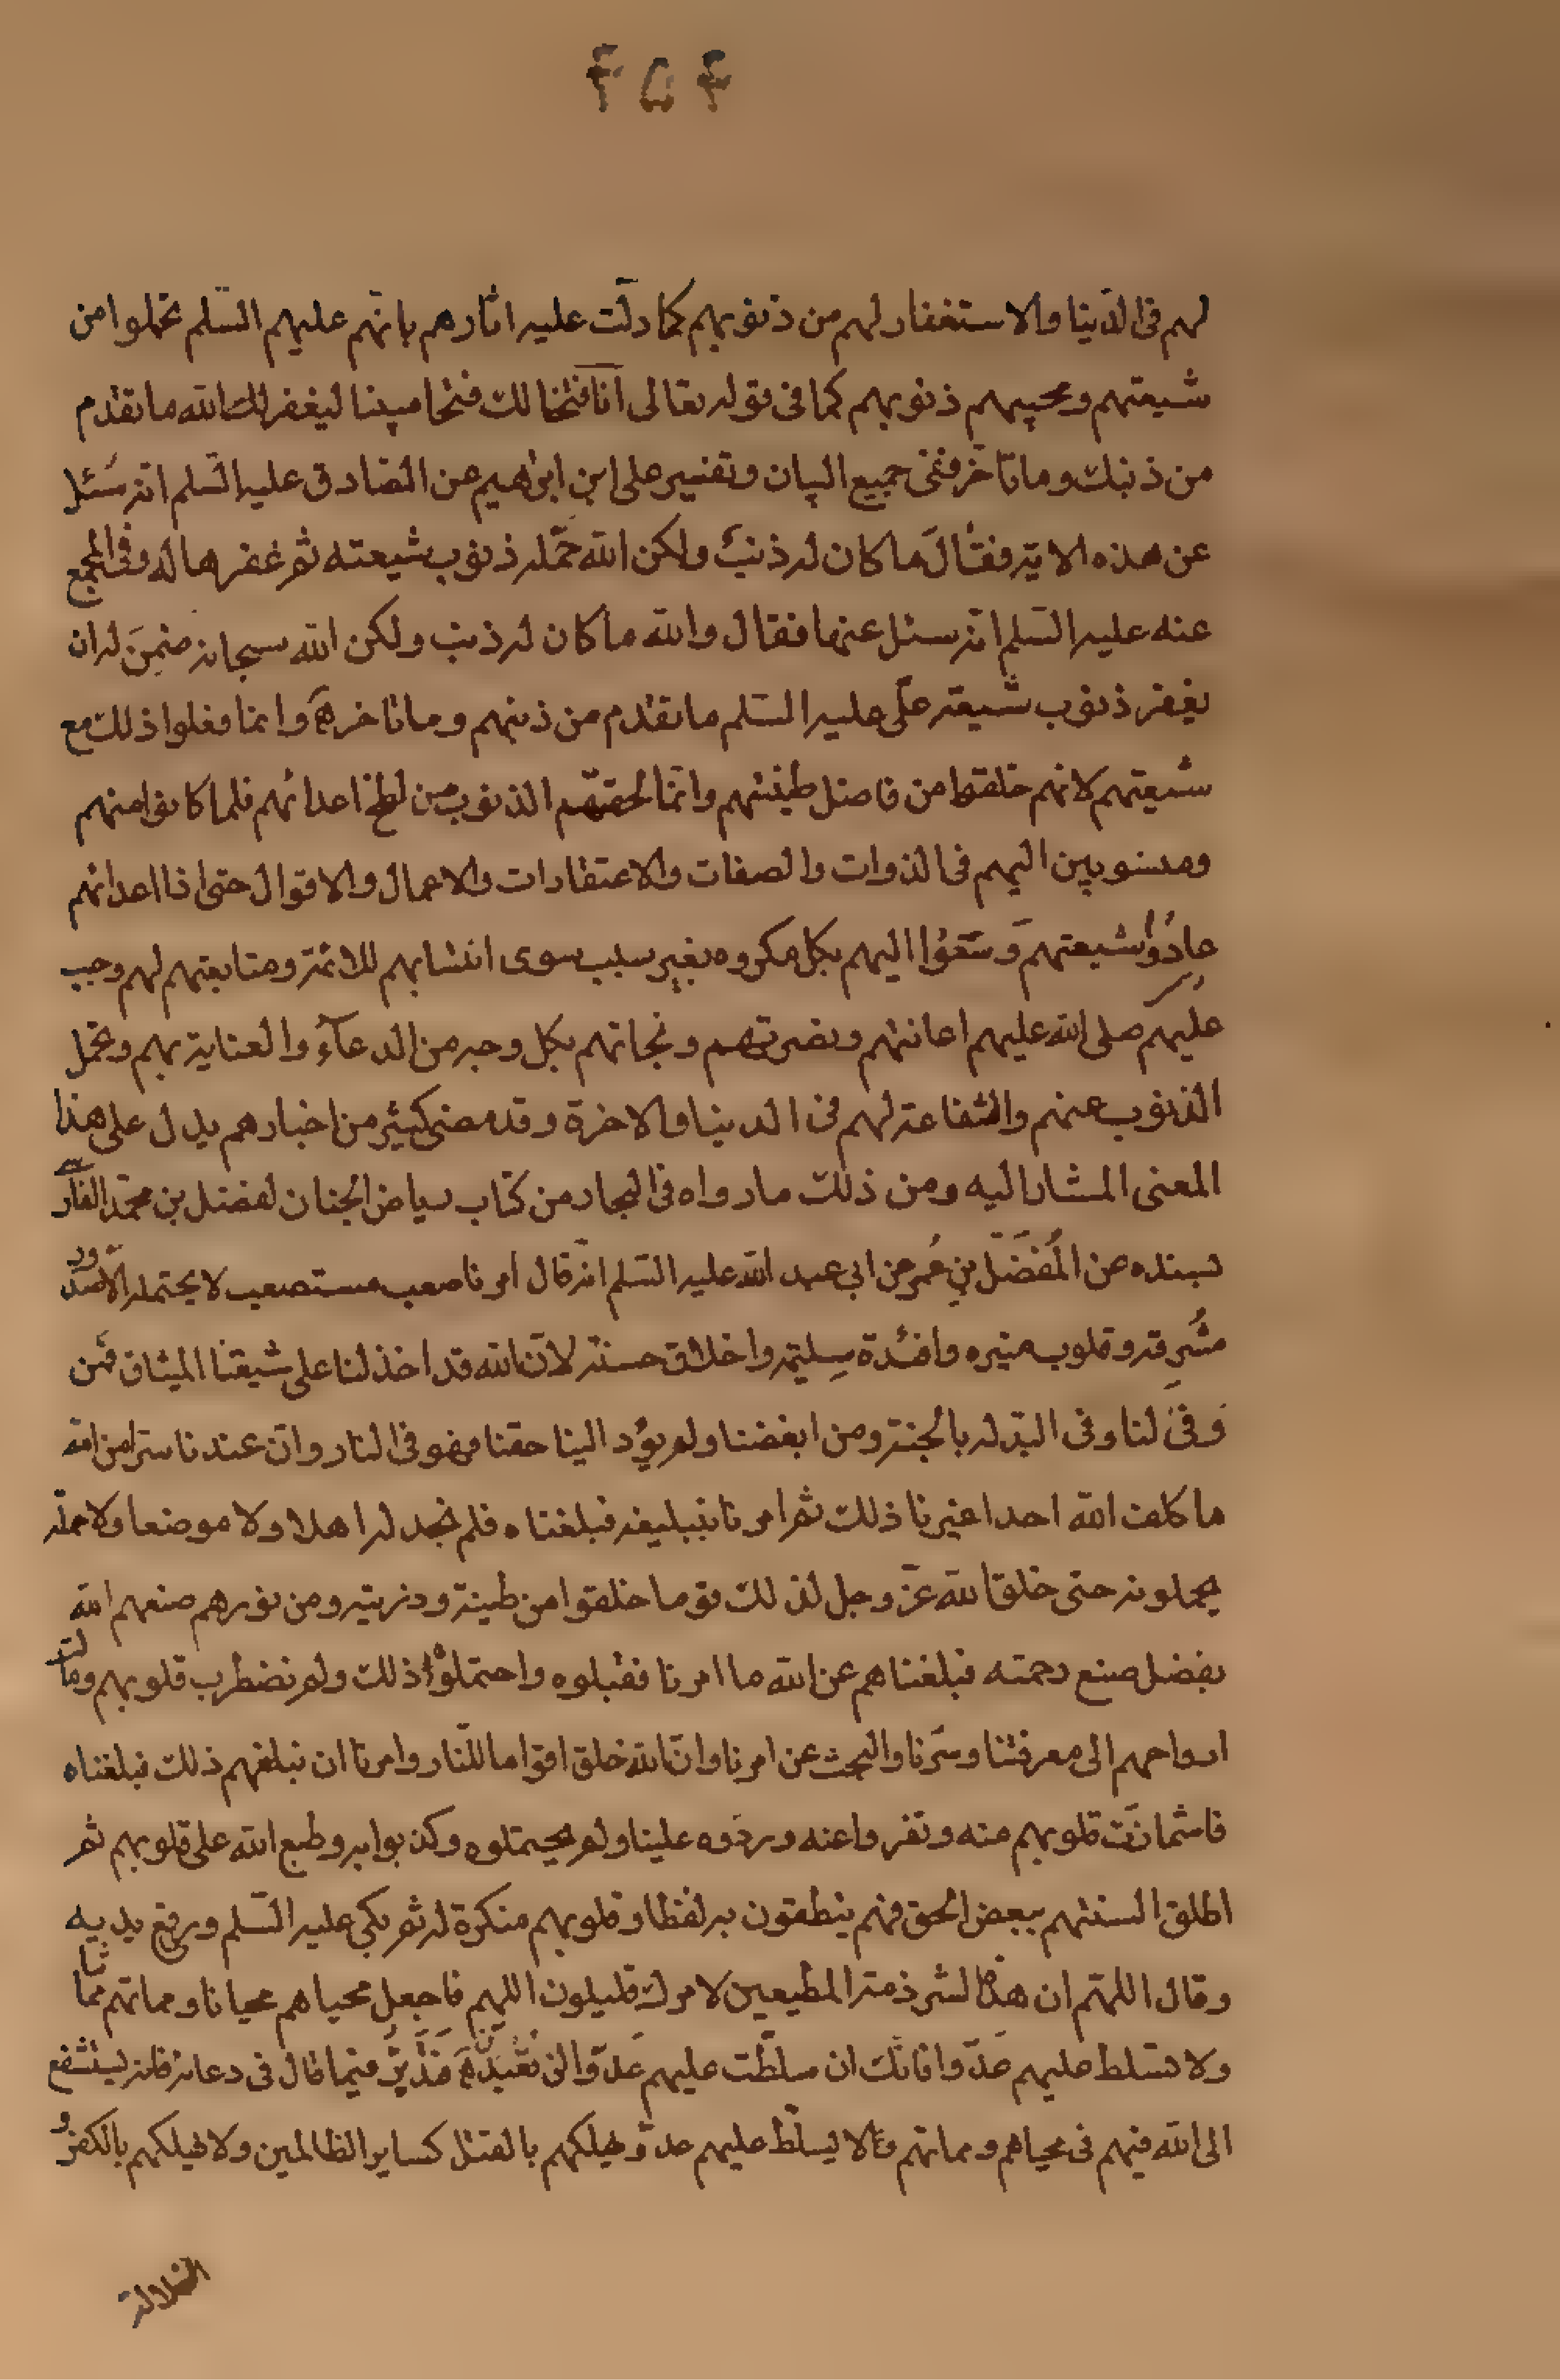 ۴۵۴
لهم فی الدّنیا والاستغفار لهم من ذنوبهم کما دلّت علیه اثارهم بانّهم علیهم السّلم تحملوا من
شیعتهم ومحبیهم ذنوبهم کما فی قوله تعالی انّا فتحنا لك فتحا مبینا لیغفر لك الله ما تقدم
من ذنبك وما تاخّر ففی جمیع البیان وتفسیر علی ابن ابراهیم عن الصّادق علیه السّلم انّه سُئل
عن هذه الایة فقالَ ما کان له ذنبٌ ولکن الله حمّله ذنوب شیعته ثم غفرها له وفی المجمع
عنه علیه السّلم انّه سئل عنها فقال والله ما کان له ذنب ولکن الله سبحانه ضمِنَ له ان
یغفر ذنوب شیعة علّی علیه السّلم ما تقدم من ذنبهم وما تاخر هَ وانما فعلوا ذلك مع
شیعتهم لانهم خلقوا من فاضل طینتهم وانّما لحقتهم الذنوب من لطخ اعدائهم فلما کانوا منهم
ومنسوبین الیهم فی الذوات والصفات والاعتقادات والاعمال والاقوال حتی اذا اعدائهم
عادُوْا شیعتهم وَسَعَوْا الیهم بکل مکروه بغیر سبب سوی انتسابهم للائمة ومتابعتهم لهم وجب
علیهم صلی الله علیهم اعانتهم ونصرتهم ونجاتهم بکل وجه من الدعآء والعنایة بهم وتحمل
الذنوب عنهم والشفاعة لهم فی الدنیا والاخرة وقد مضی کثیر من اخبارهم یدل علی هذا
المعنی المشار الیه ومن ذلك ما رواه فی البحار من کتاب ریاض الجنان لفضل بن محمّد الفارسی
بسنده عن المُفَضّل بنِ عُمر عن ابی عبد الله علیه السّلم انّه قال امرنا صعب مستصعب لا یحتمله الّا صدور
مشرِقة وقلوب منیره وافئدة سلیمة واخلاق حسنة لانّ الله قد اخذ لنا علی شیعتنا المیثاق فمَن
وَفیٰ لنا وفی الله له بالجنة ومن ابغضنا ولم یؤد الینا حقنا فهو فی النار وانّ عندنا سرّا من الله
ما کلف الله احدا غیرنا ذلك ثم امرنا بتبلیغه فبلغناه فلم نجد له اهلا ولا موضعا ولا حملة
یحملونه حتی خلق الله عزّ وجل لذلك قوما خلقوا من طینة وذریته ومن نورهم صنعهم الله
بفضل صنع رحمته فبلغناهم عن الله ما امرنا فقبلوه واحتملوْا ذلك ولم تضطرب قلوبهم ومالت
ارواحهم الی معرفتنا وسرّنا والبحث عن امرنا وانّ الله خلق اقواما للنّار وامرنا ان نبلغهم ذلك فبلغناه
فاشمازّت قلوبهم منه ونفروا عنه وردّوه علینا ولم یحتملوه وکذبوا به وطبع الله علی قلوبهم ثم
اطلق السنتهم ببعض الحق فهم ینطقون به لفظا وقلوبهم منکرة له ثم بکی علیه السّلم ورفع یدیه
وقال اللهّم ان هذه لشرذمة المطیعین لامرك قلیلون اللهم فاجعل محیاهم محیانا ومماتهم مماتنا
ولا تسلط علیهم عَدّوا فانّك ان سلطّت علیهم عَدّوا لن تُعْبَد هَ فتَدَبَّر فیما قال فی دعائه فانه یستشفع
الی الله فیهم فی محیاهم ومماتهم والّا یسلّط علیهم عدوّ یهلکهم بالقتل کسایر الظالمین ولا یهلکهم بالکفر و
الضلالة